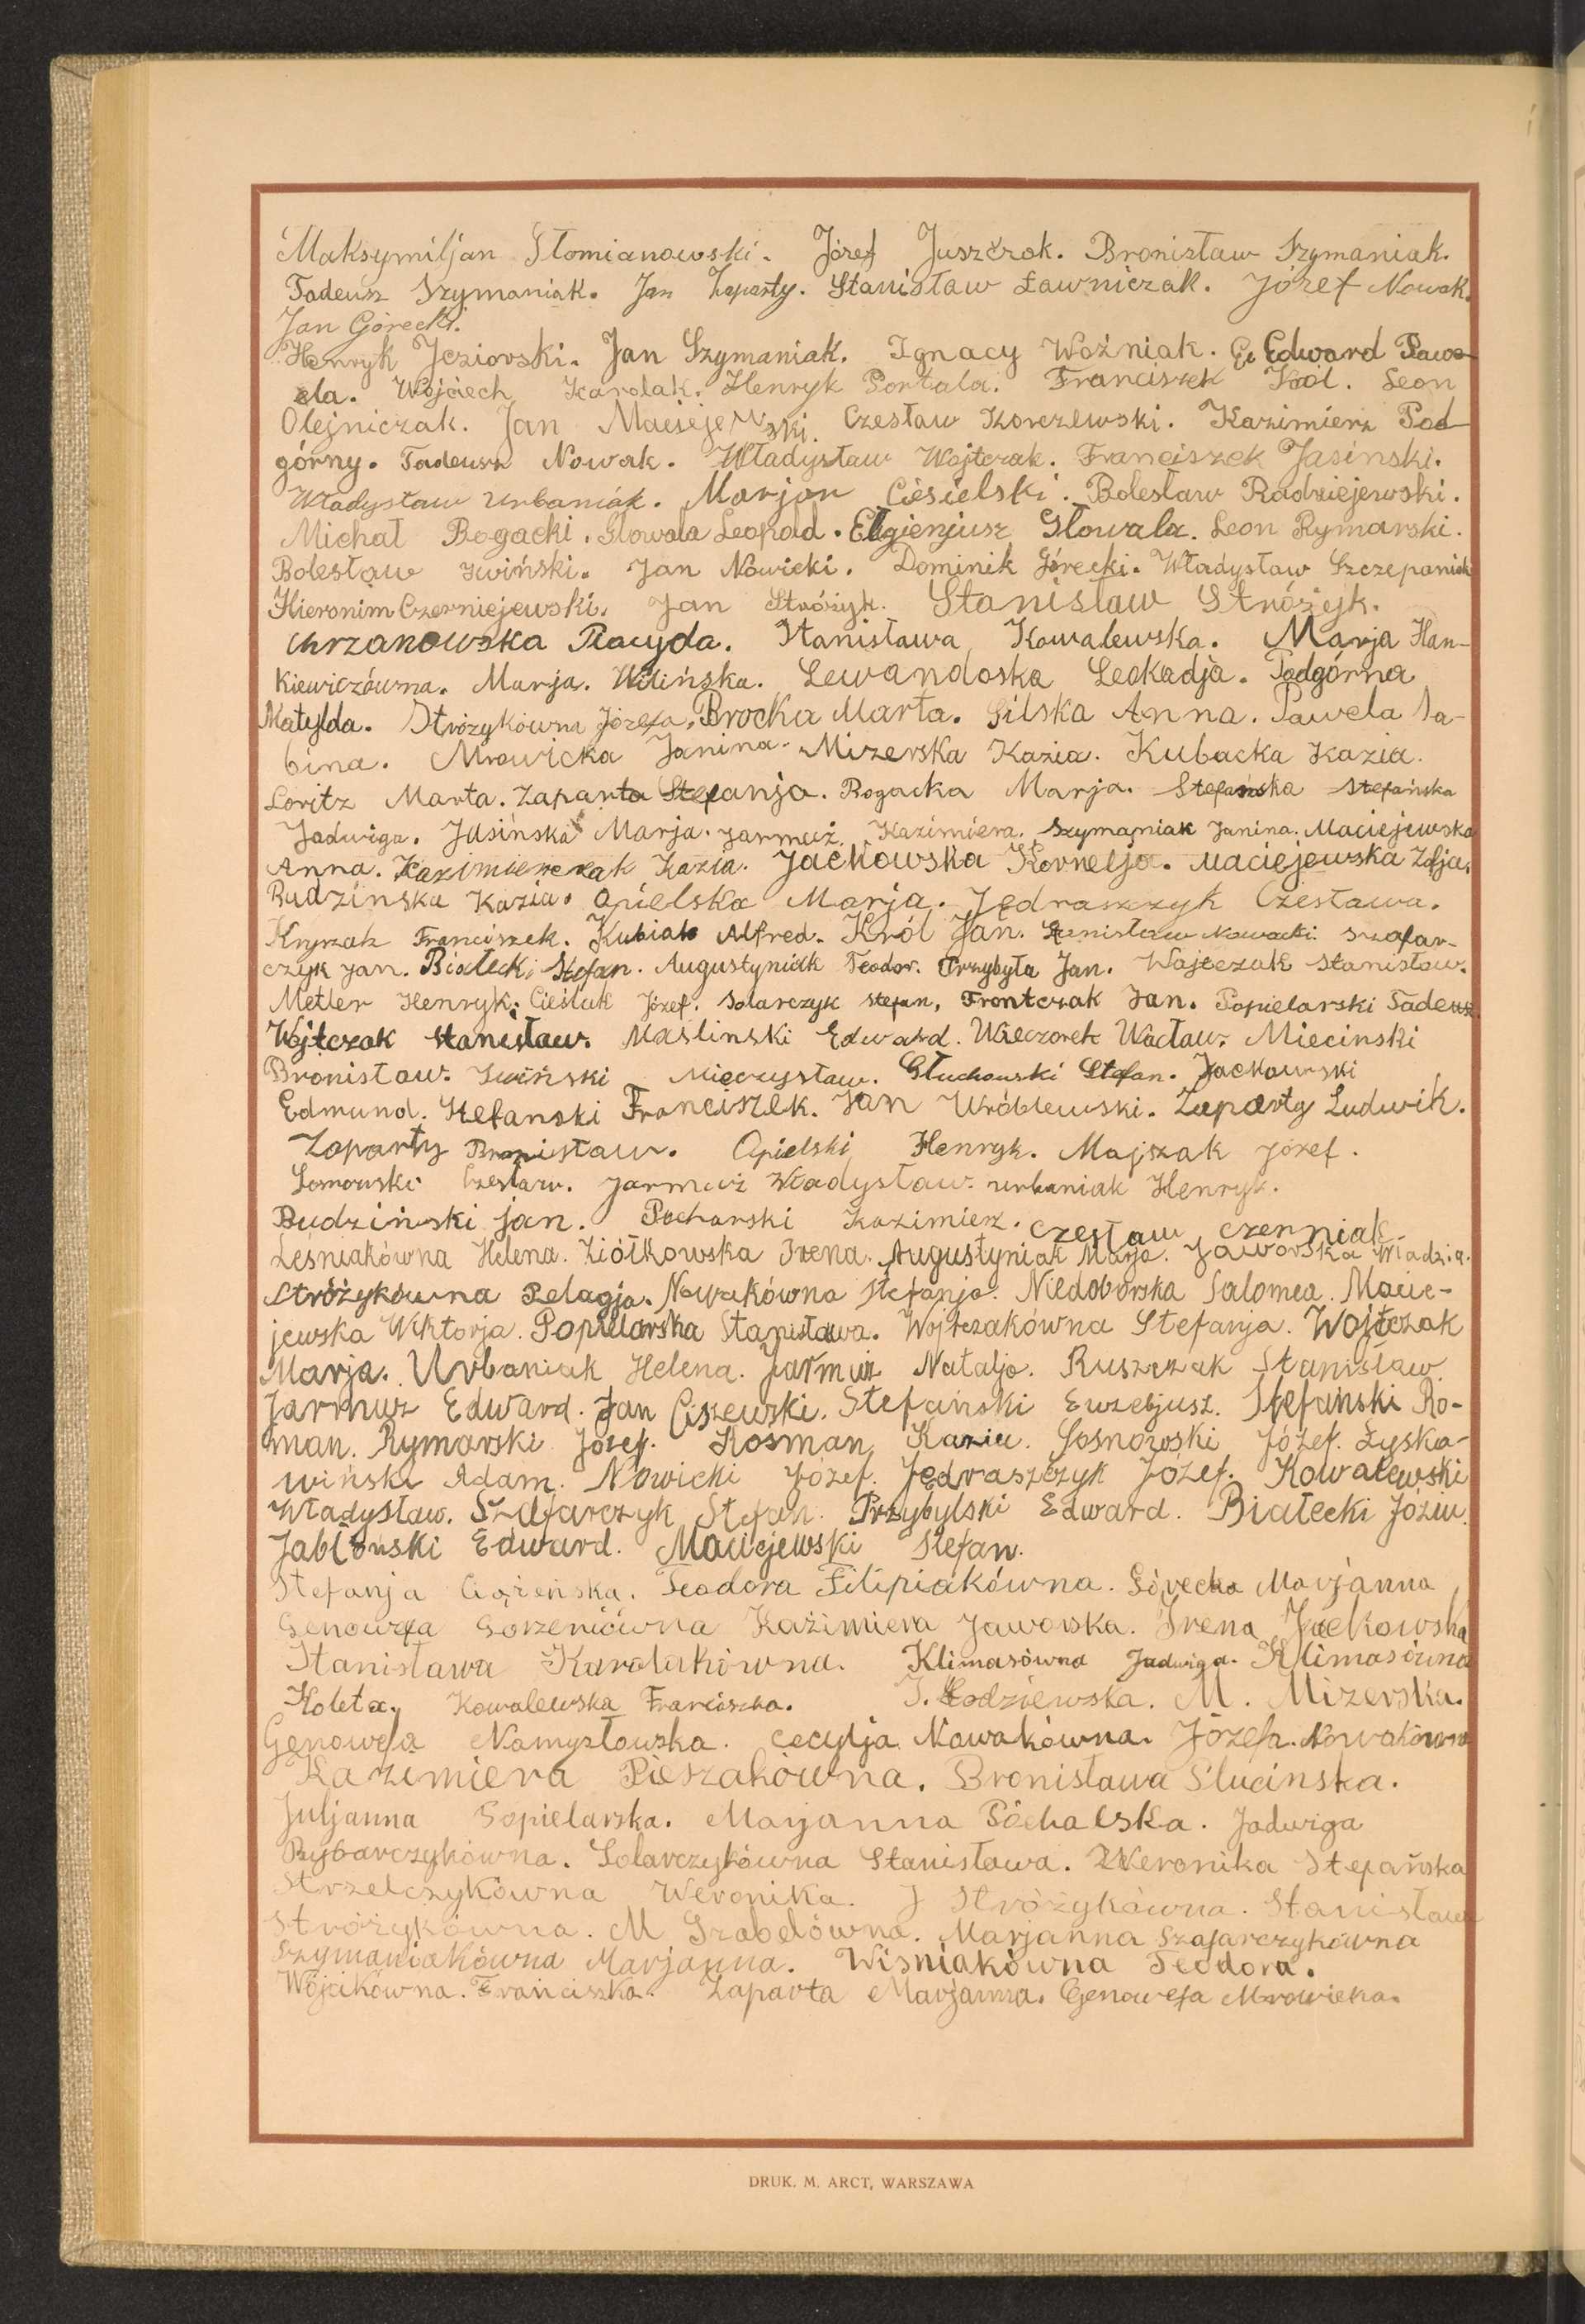 Maksymiljan Słomianowski. Józef Juszczak. Bronisław Szymaniak.
Tadeusz Szymaniak. Jan Zaparty. Stanisław Ławniczak. Józef Nowak.
Jan Górecki.
Henryk Jeziorski. Jan Szymaniak. Ignacy Woźniak. Edward Pawe-
ela. Wojciech Karolak. Henryk Portala. Franciszek Król. Leon
Olejniczak. Jan Maciejewski. Czesław Korczewski. Kazimierz Pod-
górny. Tadeusz Nowak. Władysław Wojtczak. Franciszek Jasinski.
Władysław Urbaniak. Marjan Ciesielski. Bolesław Radziejewski.
Michał Bogacki. Glowala Leopold. Eugienjusz Głowala. Leon Rymarski.
Bolesław Iwiński. Jan Nowicki. Dominik Górecki. Władysław Szczepaniak
Hieronim Czerniejewski. Jan Stróżyk. Stanisław Stróżyk.
Chrzanowska Placyda. Stanisława Kowalewska. Marja Han-
kiewiczówna. Marja. Wilińska. Lewandoska Leokadja. Podgórna
Matylda. Stróżykówna Józefa. Brocka Marta. Gilska Anna. Pawela Sa-
bina. Mrowicka Janina. Mizerska Kazia. Kubacka Kazia.
Loritz Marta. Zaparta Stefanja. Bogacka Marja. Stefańska Stefańska
Jadwiga. Jasińska Marja. Jarmuż Kazimiera. Szymaniak Janina. Maciejewska
Anna. Kazimierczak Kazia. Jackowska Kornelja. Maciejewska Zofja.
Budzinska Kazia. Opielska Marja. Jędraszczyk Czesława.
Kryszak Franciszek. Kubiak Alfred. Król Jan. Stanisław Nowacki. Szafar-
czyk Jan. Białecki Stefan. Augustyniak Teodor. Przybyła Jan. Wojtczak Stanisław.
Metler Henryk. Cieślak Józef. Solarczyk Stefan, Frontczak Jan. Popielarski Tadeusz.
Wojtczak Stanisław. Maslinski Edward. Wieczorek Wacław. Miecinski
Bronisław. Iwiński Mieczysław. Głuchowski Stefan. Jackowski
Edmund. Stefanski Franciszek. Jan Wróblewski. Zaparty Ludwik.
Zoparty Bronisław. Opielski Henryk. Majszak Józef.
Czesław. Jarmuż Władysław. Urbaniak Henryk.
Budziński Jan. Pocharski Kazimierz. Czesław Czenniak.
Leśniakówna Helena. Ziółkowska Irena. Augustyniak Marja. Jaworska Władzia.
Stróżykówna Pelagja. Nowakówna Stefanja. Niedoborska Salomea. Macie-
jewska Wiktorja. Popielarska Stanisława. Wojtczakówna Stefanja. Wojtczak
Marja. Urbaniak Helena. Jarmuż Natalja. Ruszczak Stanisław
Jarmuż Edward. Jan Ciszewski. Stefański Euzebjusz. Stefański Ro-
man. Rymarski Józef. Kosman Kazia. Sosnowski Józef. Łyska-
wiński Adam. Nowicki Józef. Jędraszczyk Józef. Kowalewski
Władysław. Szafarczyk Stefan. Przybylski Edward. Białecki Józiu.
Jabłoński Edward. Maciejewski Stefan.
Stefanja Teodora Filipiakówna. Górecka Marjanna
Genowefa Kazimiera Jaworska. Irena Jackowska
Stanisława Karolakówna. Klimasówna Jadwiga. Klimasówna
Koleta. Kowalewska Franciszka. J. Łodziewska. M. Mizerska.
Genowefa Namysłowska. Cecylja Nowakówna. Józefa Nowakówna
Kazimiera Pieszakówna. Bronisława Slucinska.
Juljanna Popielarska. Marjanna Póchalska. Jadwiga
Rybarczykówna. Solarczykówna Stanisława. Weronika Stefańska
Strzelczykówna Weronika. J Stróżykówna. Stanisława
Stróżykówna. M Szabelówna. Marjanna Szafarczykówna
Szymaniakówna Marjanna. Wisniakówna Teodora.
Wójcikówna. Franciszka. Zaparta Marjanna. Genowefa Mrowicka.
DRUK. M. ARCT, WARSZAWA